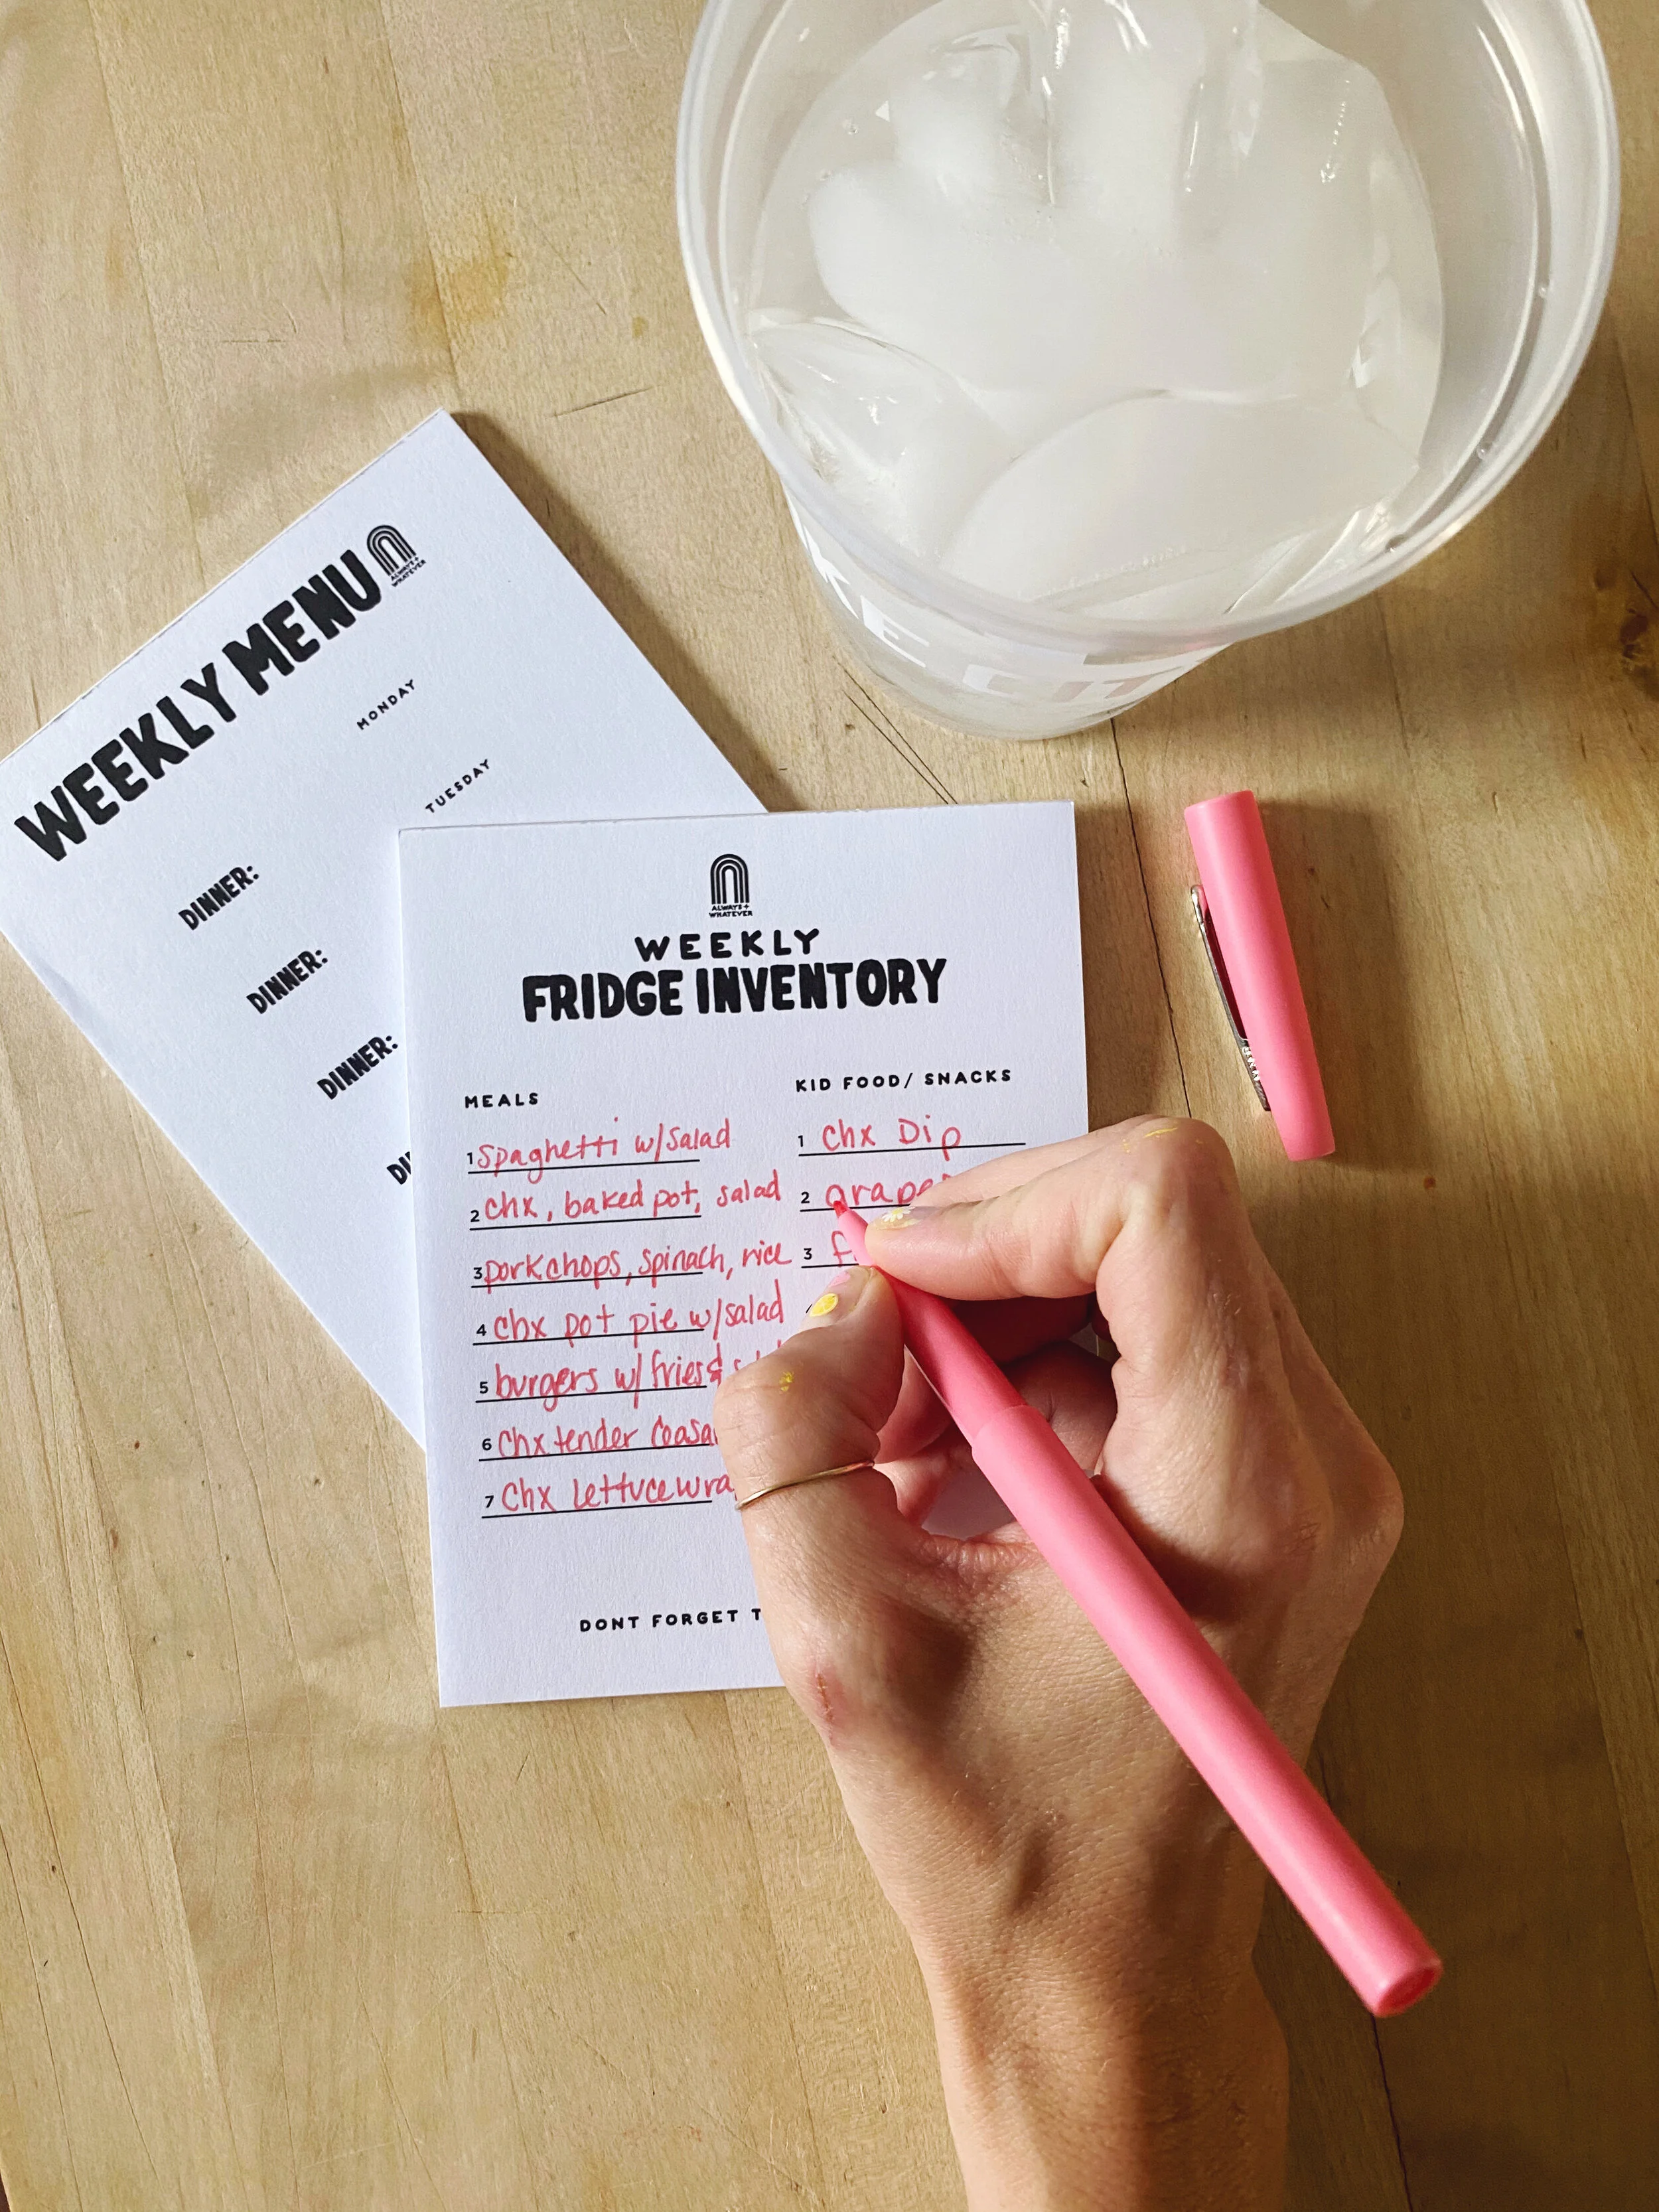 WEEKLY MENU
ALWAYS +
WHATEVER
MONDAY
DINNER:
TUESDAY
DINNER:
DINNER:
ALWAYS +
WHATEVER
WEEKLY
FRIDGE INVENTORY
MEALS
1 Spaghetti w/salad
2 chx, baked pot, salad
3 porkchops, spinach, rice
4 chx pot pie w/salad
5 burgers w/ fries &
6 chx tender
7 Chx lettuce
KID FOOD/ SNACKS
1 Chx Dip
2
3
DONT FORGET